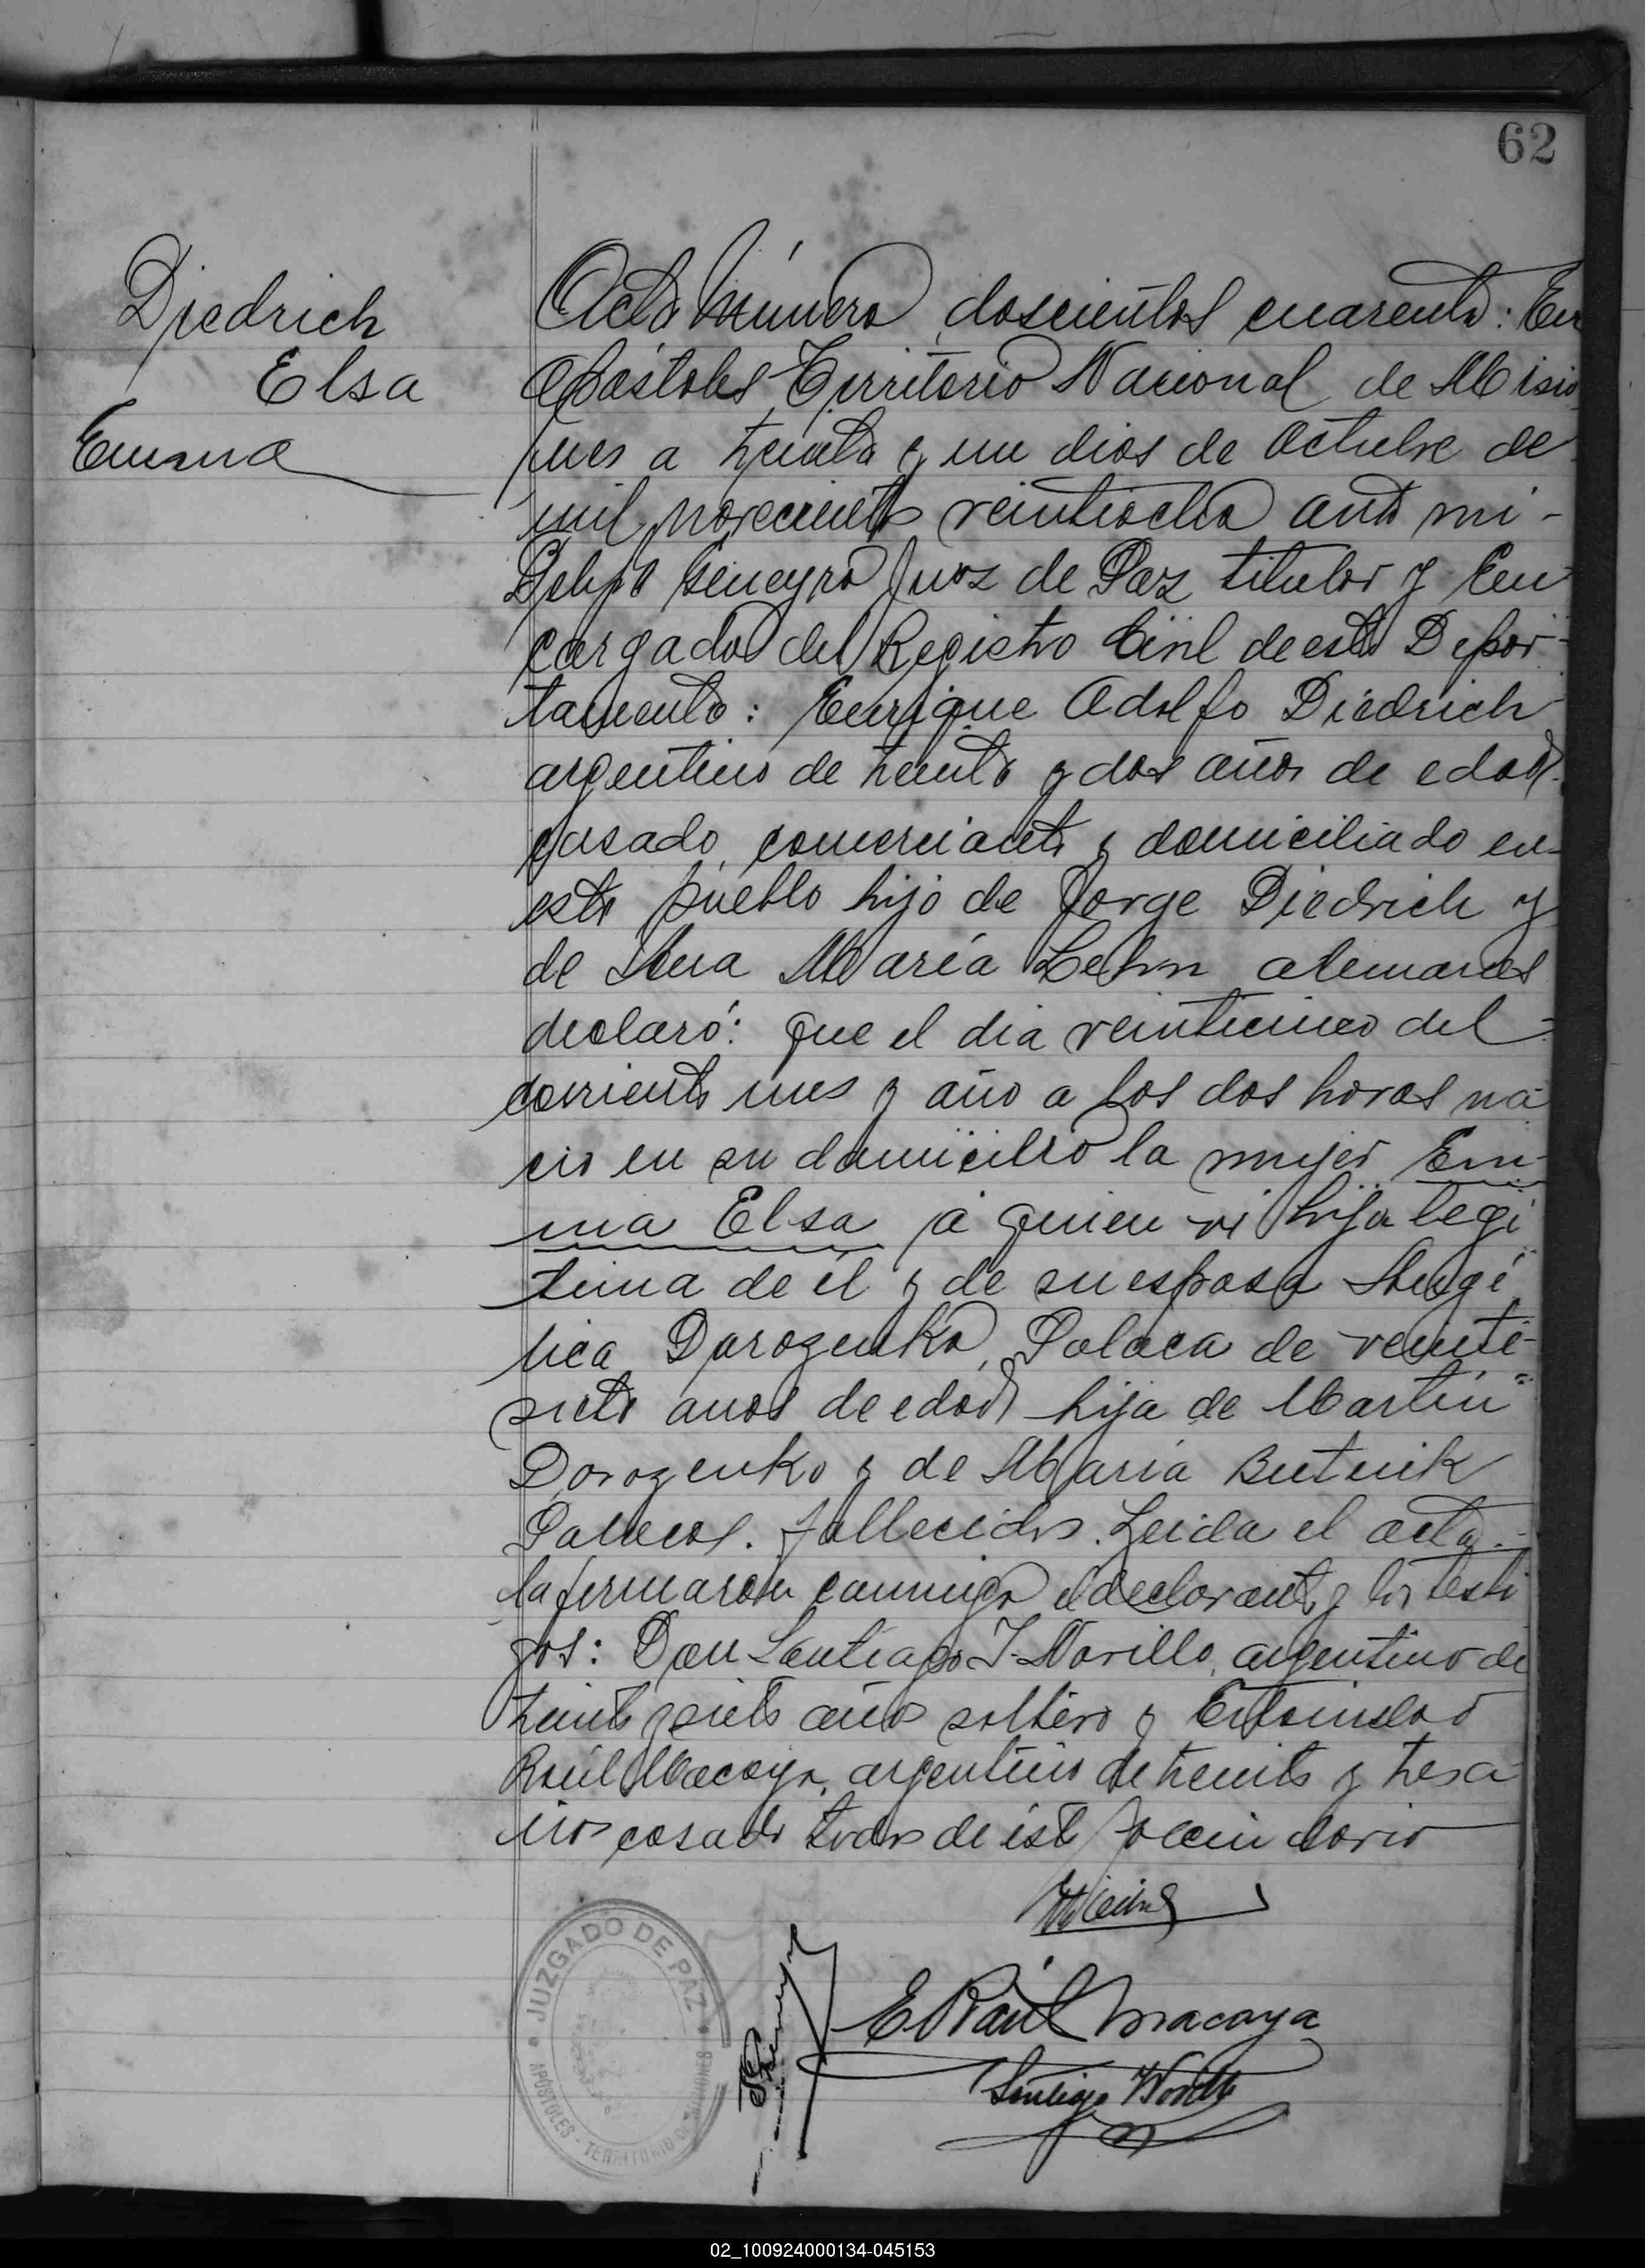 62
Diedrich
Elsa
Emma
Acta Número doscientos cuarenta: En
Apóstoles Territorio Nacional de Misio
nes a treinta y un dias de Octubre de
mil novecientos veintiocho ante mi -
Felipe Gineyro Juez de Paz titular y En
cargado del Registro Civil de este Depar-
tamento: Enrique Adolfo Diedrich
argentino de treinta y dos años de edad.
casado, comerciante y domiciliado en-
este pueblo hijo de Jorge Diedrich y
de Ana María Lehn alemanes
declaró: que el dia veinticinco del -
corriente mes y año a las dos horas na
cio en su domicilio la mujer Em-
ma Elsa á quien vi hija legi
tima de él y de su esposa Angé
lica Dorozenko, Polaca de veinte-
siete anos de edad hija de Martin
Dorozenko y de María Butnik
Polacos. fallecidos. Leida el acta.-
la firmaron conmigo el declarante y los testi
gos: Don Santiago J. Norillo, argentino de
treinta y siete años soltero y
Raúl Macaya, argentino de treinta y tres a
ños casado todos de este
E Raúl Macaya
Santiago Norillo
JUZGADO DE PAZ
APÓSTOLES - TERRITORIO DE MISIONES
02_100924000134-045153